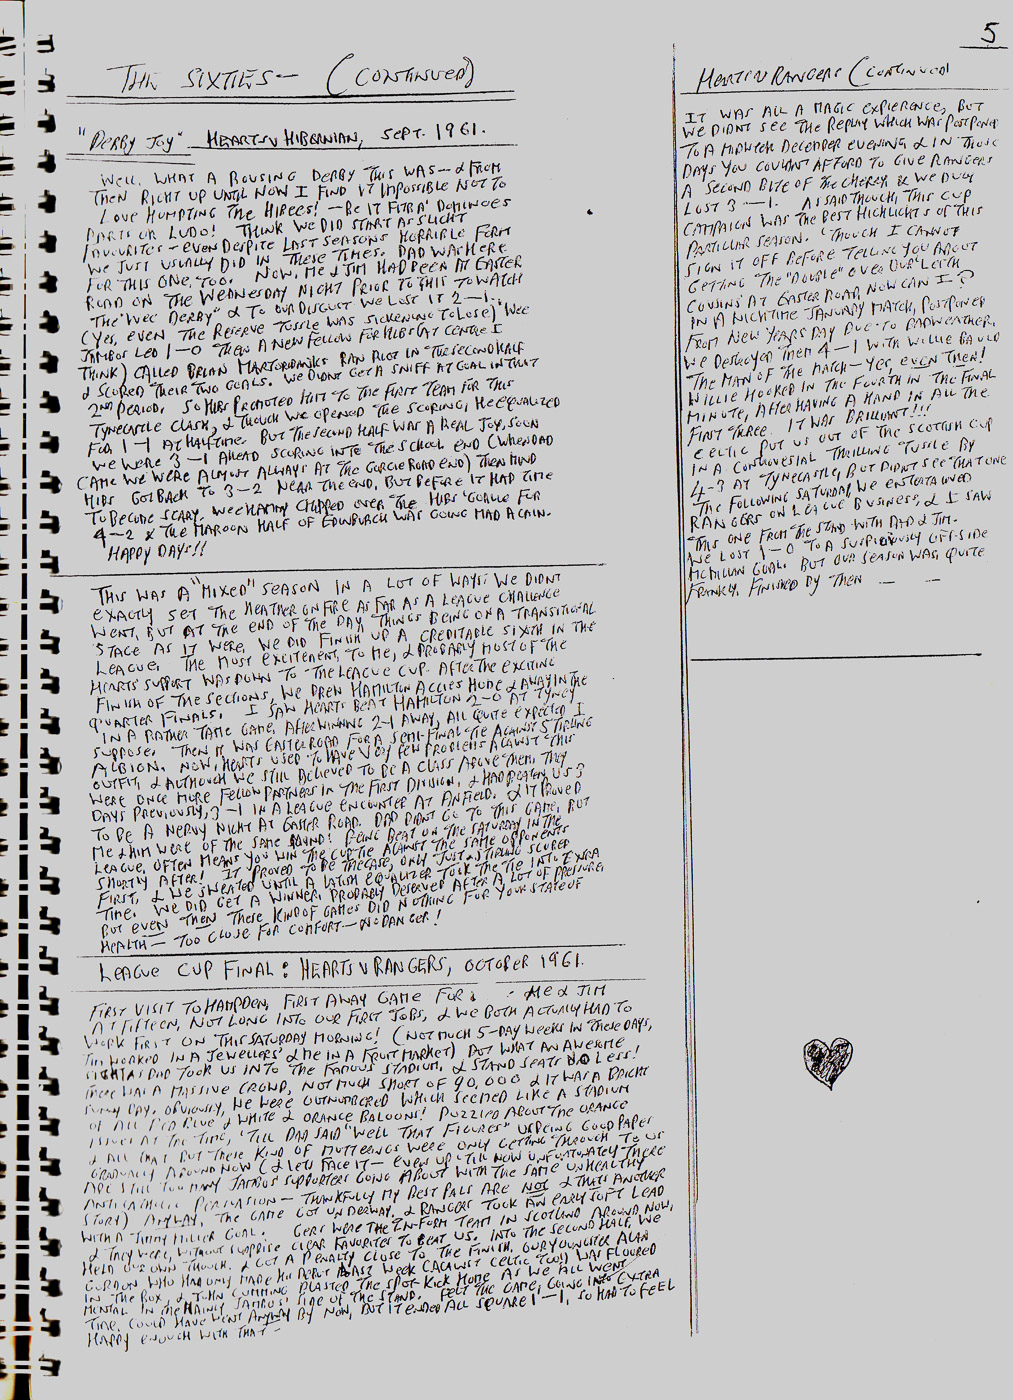 5
THE SIXTIES — (CONTINUED)
"DERBY JOY" HEARTS V HIBERNIAN, SEPT. 1961.
WELL, WHAT A ROUSING DERBY THIS WAS — & FROM
THEN RIGHT UP UNTIL NOW I FIND IT IMPOSSIBLE NOT TO
LOVE HUMPTING THE HIBEES! — BE IT FITBA' DOMINOES
DARTS OR LUDO! THINK WE DID START AS SLIGHT
FAVOURITES — EVEN DESPITE LAST SEASONS HORRIBLE FORM
WE JUST USUALLY DID IN THESE TIMES. DAD WAS HERE
FOR THIS ONE, TOO. NOW, ME & JIM HAD BEEN AT EASTER
ROAD ON THE WEDNESDAY NIGHT PRIOR TO THIS TO WATCH
THE "WEE DERBY" & TO OUR DISGUST WE LOST IT 2—1..
(YES, EVEN THE RESERVE TUSSLE WAS SICKENING TO LOSE) WEE
JAMBOS LED 1—0 THEN A NEW FELLOW FOR HIBS (AT CENTRE I
THINK) CALLED BRIAN MARTORBANKS RAN RIOT IN THE SECOND HALF
& SCORED THEIR TWO GOALS. WE DIDNT GET A SNIFF AT GOAL IN THAT
2ND PERIOD. SO HIBS PROMOTED HIM TO THE FIRST TEAM FOR THIS
TYNECASTLE CLASH, & THOUGH WE OPENED THE SCORING, HE EQUALIZED
FOR 1—1 AT HALF TIME. BUT THE SECOND HALF WAS A REAL JOY, SOON
WE WERE 3—1 AHEAD SCORING INTE THE SCHOOL END (WHEN DAD
CAME WE WERE ALMOST ALWAYS AT THE GORGIE ROAD END) THEN MIND
HIBS GOT BACK TO 3—2 NEAR THE END, BUT BEFORE IT HAD TIME
TO BECOME SCARY. WEE HAMMY CHIPPED OVER THE HIBS 'GOALIE FOR
4—2 & THE MAROON HALF OF EDINBURGH WAS GOING MAD AGAIN.
HAPPY DAYS!!
THIS WAS A "MIXED" SEASON IN A LOT OF WAYS: WE DIDNT
EXACTLY SET THE HEATHER ON FIRE AS FAR AS A LEAGUE CHALLENGE
WENT, BUT AT THE END OF THE DAY, THINGS BEING ON A TRANSITIONAL
STAGE AS IT WERE, WE DID FINISH UP A CREDITABLE SIXTH IN THE
LEAGUE. THE MOST EXCITEMENT, TO ME, & PROBABLY MOST OF THE
HEARTS SUPPORT WAS DOWN TO THE LEAGUE CUP. AFTER THE EXCITING
FINISH OF THE SECTIONS, WE DREW HAMILTON ACCIES HOME & AWAY IN THE
QUARTER FINALS. I SAW HEARTS BEAT HAMILTON 2—0 AT TYNEY
IN A RATHER TAME GAME, AFTER WINNING 2-1 AWAY, ALL QUITE EXPECTED I
SUPPOSE. THEN IT WAS EASTER ROAD FOR A SEMI-FINAL TIE AGAINST STIRLING
ALBION. NOW, HEARTS USED TO HAVE VERY FEW PROBLEMS AGAINST THIS
OUTFIT, & ALTHOUGH WE STILL BELIEVED TO BE A CLASS ABOVE THEM, THEY
WERE ONCE MORE FELLOW PARTNERS IN THE FIRST DIVISION, & HAD BEATEN US 3
DAYS PREVIOUSLY, 3—1 IN A LEAGUE ENCOUNTER AT ANFIELD. & IT PROVED
TO BE A NERVY NIGHT AT EASTER ROAD. DAD DIDNT GO TO THIS GAME, BUT
ME & HIM WERE OF THE SAME MIND! BEING BEAT ON THE SATURDAY IN THE
LEAGUE, OFTEN MEANS YOU WIN THE CUP TIE AGAINST THE SAME OPPONENTS
SHORTLY AFTER! IT PROVED TO BE THE CASE, ONLY JUST & STIRLING SCORED
FIRST, & WE SWEATED UNTIL A LATISH EQUALIZER TOOK THE TIE INTO EXTRA
TIME. WE DID GET A WINNER, PROBABLY DESERVED AFTER A LOT OF PRESSURE,
BUT EVEN THEN THESE KIND OF GAMES DID NOTHING FOR YOUR STATE OF
HEALTH — TOO CLOSE FOR COMFORT — NO DANGER!
LEAGUE CUP FINAL: HEARTS V RANGERS, OCTOBER 1961.
FIRST VISIT TO HAMPDEN, FIRST AWAY GAME FOR ME & JIM
AT FIFTEEN, NOT LONG INTO OUR FIRST JOBS, & WE BOTH ACTUALLY HAD TO
WORK FIRST ON THIS SATURDAY MORNING! (NOT MUCH 5-DAY WEEKS IN THESE DAYS,
JIM WORKED IN A JEWELLERS' & ME IN A FRUIT MARKET) BUT WHAT AN AWESOME
SIGHT AS DAD TOOK US INTO THE FAMOUS STADIUM, & STAND SEATS NO LESS!
THERE WAS A MASSIVE CROWD, NOT MUCH SHORT OF 90,000 & IT WAS A BRIGHT
SUNNY DAY. OBVIOUSLY, WE WERE OUTNUMBERED WHICH SEEMED LIKE A STADIUM
OF ALL RED BLUE & WHITE & ORANGE BALOONS! PUZZLED ABOUT THE ORANGE
ISSUES AT THE TIME, 'TILL DAD SAID "WELL THAT FIGURES" US BEING GOOD PAPES
& ALL THAT BUT THESE KIND OF MUTTERINGS WERE ONLY GETTING THROUGH TO US
GRADUALLY AROUND NOW (& LETS FACE IT — EVEN UP 'TILL NOW UNFORTUNATELY THERE
ARE STILL TOO MANY JAMBOS SUPPORTERS GOING ABOUT WITH THE SAME UNHEALTHY
ANTI-CATHOLIC PERSUASION — THANKFULLY MY BEST PALS ARE NOT & THATS ANOTHER
STORY) ANYWAY, THE GAME GOT UNDERWAY, & RANGERS TOOK AN EARLY SOFT LEAD
WITH A JIMMY MILLER GOAL. GERS WERE THE IN-FORM TEAM IN SCOTLAND AROUND NOW,
& THEY WERE, WITHOUT SUPPRISE CLEAR FAVORITES TO BEAT US. INTO THE SECOND HALF, WE
HELD OUR OWN THOUGH. & GOT A PENALTY CLOSE TO THE FINISH. OUR YOUNGSTER ALAN
GORDON WHO HAD ONLY MADE HIS DEBUT LAST WEEK (AGAINST CELTIC TOO) WAS FLOORED
IN THE BOX, & JOHN CUMMING BLASTED THE SPOT-KICK HOME AS WE ALL WENT
MENTAL IN THE MAINLY JAMBOS' SIDE OF THE STAND. FELT THE GAME, GOING INTO EXTRA
TIME, COULD HAVE WENT ANYWAY BY NOW, BUT IT ENDED ALL SQUARE 1—1, SO HAD TO FEEL
HAPPY ENOUGH WITH THAT —
HEARTS V RANGERS (CONTINUED)
IT WAS ALL A MAGIC EXPIERENCE, BUT
WE DIDNT SEE THE REPLAY WHICH WAS POSTPONED
TO A MIDWEEK DECEMBER EVENING, & IN THOSE
DAYS YOU COULDNT AFFORD TO GIVE RANGERS
A SECOND BITE OF THE CHERRY & WE DULY
LOST 3—1. AS I SAID THOUGH, THIS CUP
CAMPAIGN WAS THE BEST HIGHLIGHTS OF THIS
PARTICLAR SEASON. THOUGH I CANNOT
SIGN IT OFF BEFORE TELLING YOU ABOUT
GETTING THE "DOUBLE" OVER OUR LEITH
COUSINS AT EASTER ROAD, NOW CAN I?
IN A NIGHTIME JANUARY MATCH, POSTPONED
FROM NEW YEARS DAY DUE TO BAD WEATHER,
WE DESTROYED THEM 4—1 WITH WILLIE BAULD
THE MAN OF THE MATCH — YES, EVEN THEN!
WILLIE HOOKED IN THE FOURTH IN THE FINAL
MINUTE, AFTER HAVING A HAND IN ALL THE
FIRST THREE. IT WAS BRILLIANT!!!
CELTIC PUT US OUT OF THE SCOTTISH CUP
IN A CONTROVESIAL THRILLING TUSSLE BY
4-3 AT TYNECASTLE, BUT DIDNT SEE THAT ONE
THE FOLLOWING SATURDAY WE ENTERTAINED
RANGERS ON LEAGUE BUSINESS, & I SAW
THIS ONE FROM THE STAND WITH DAD & JIM.
WE LOST 1—0 TO A SUSPICIOUSLY OFF-SIDE
MCMILLAN GOAL. BUT OUR SEASON WAS, QUITE
FRANKLY, FINISHED BY THEN — —